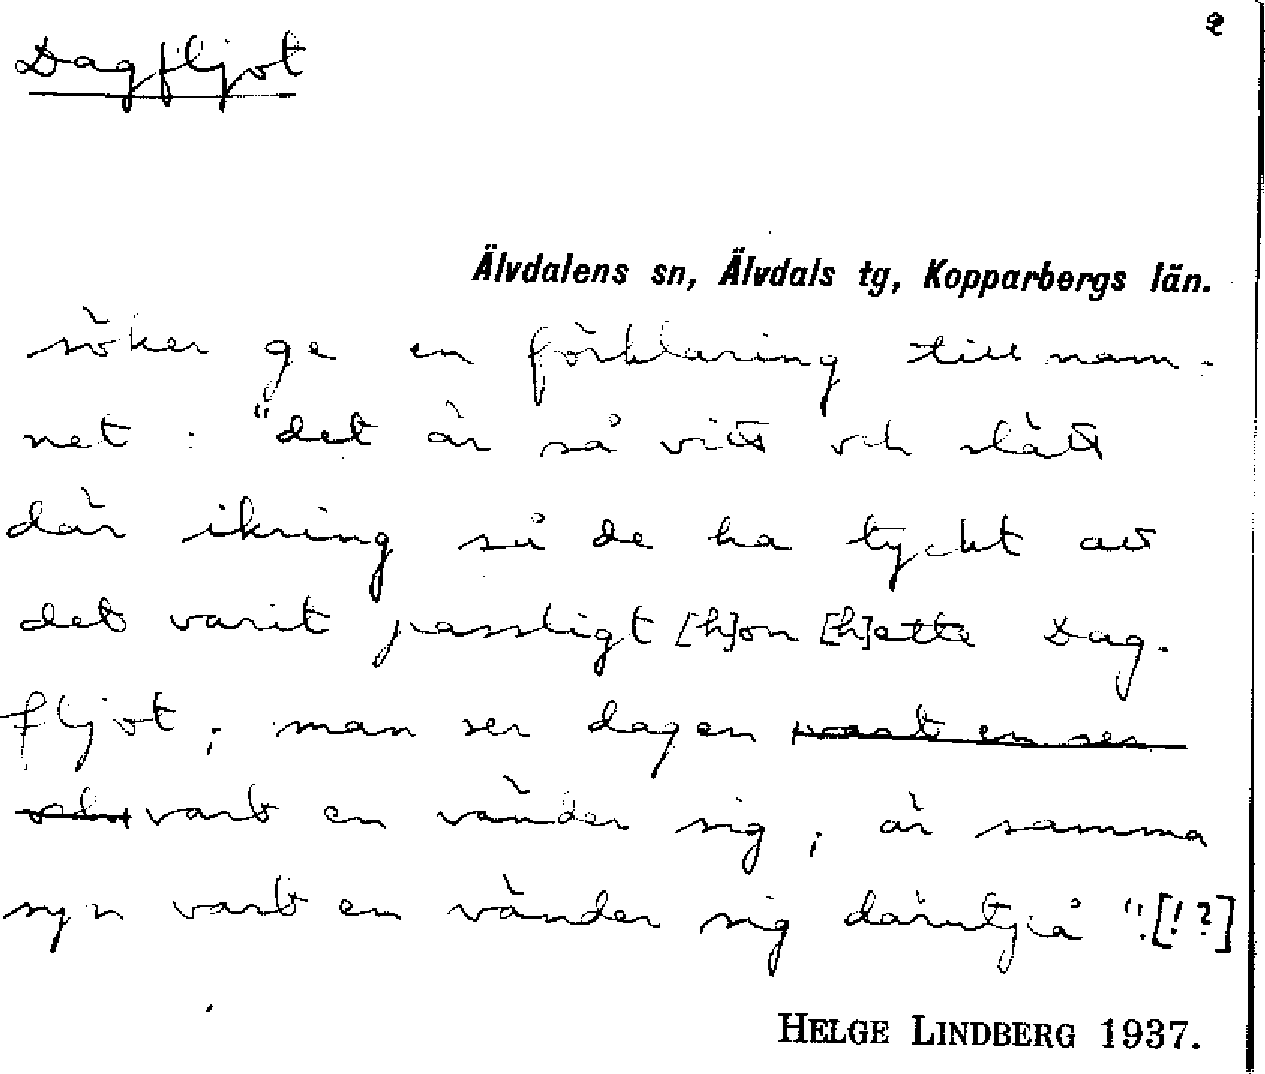 2
Dagfljot
Älvdalens sn, Älvdals tg, Kopparbergs län.
söker ge en förklaring till nam-
net: "det är så vitt och slätt
där ikring så de ha tyckt att
det varit passligt [h]on [h]ette Dag-
fljot; man ser dagen vart en ser
vart en vänder sig; är samma
syn vart en vänder sig därutpå".[!?]
HELGE LINDBERG 1937.